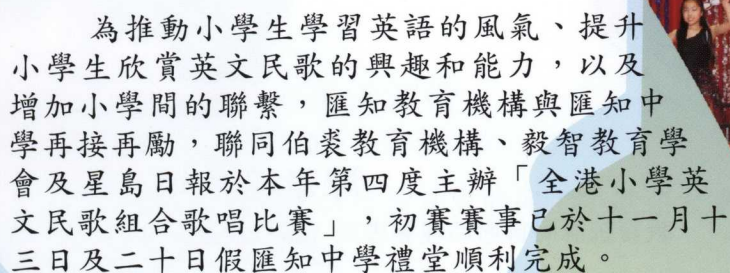 為推動小學生學習英語的風氣、提升
小學生欣賞英文民歌的興趣和能力，以及
增加小學間的聯繫，匯知教育機構與匯知中
學再接再勵，聯同伯裘教育機構、毅智教育學
會及星島日報於本年第四度主辦「全港小學英
文民歌組合歌唱比賽」，初賽賽事已於十一月十
三日及二十日假匯知中學禮堂順利完成。